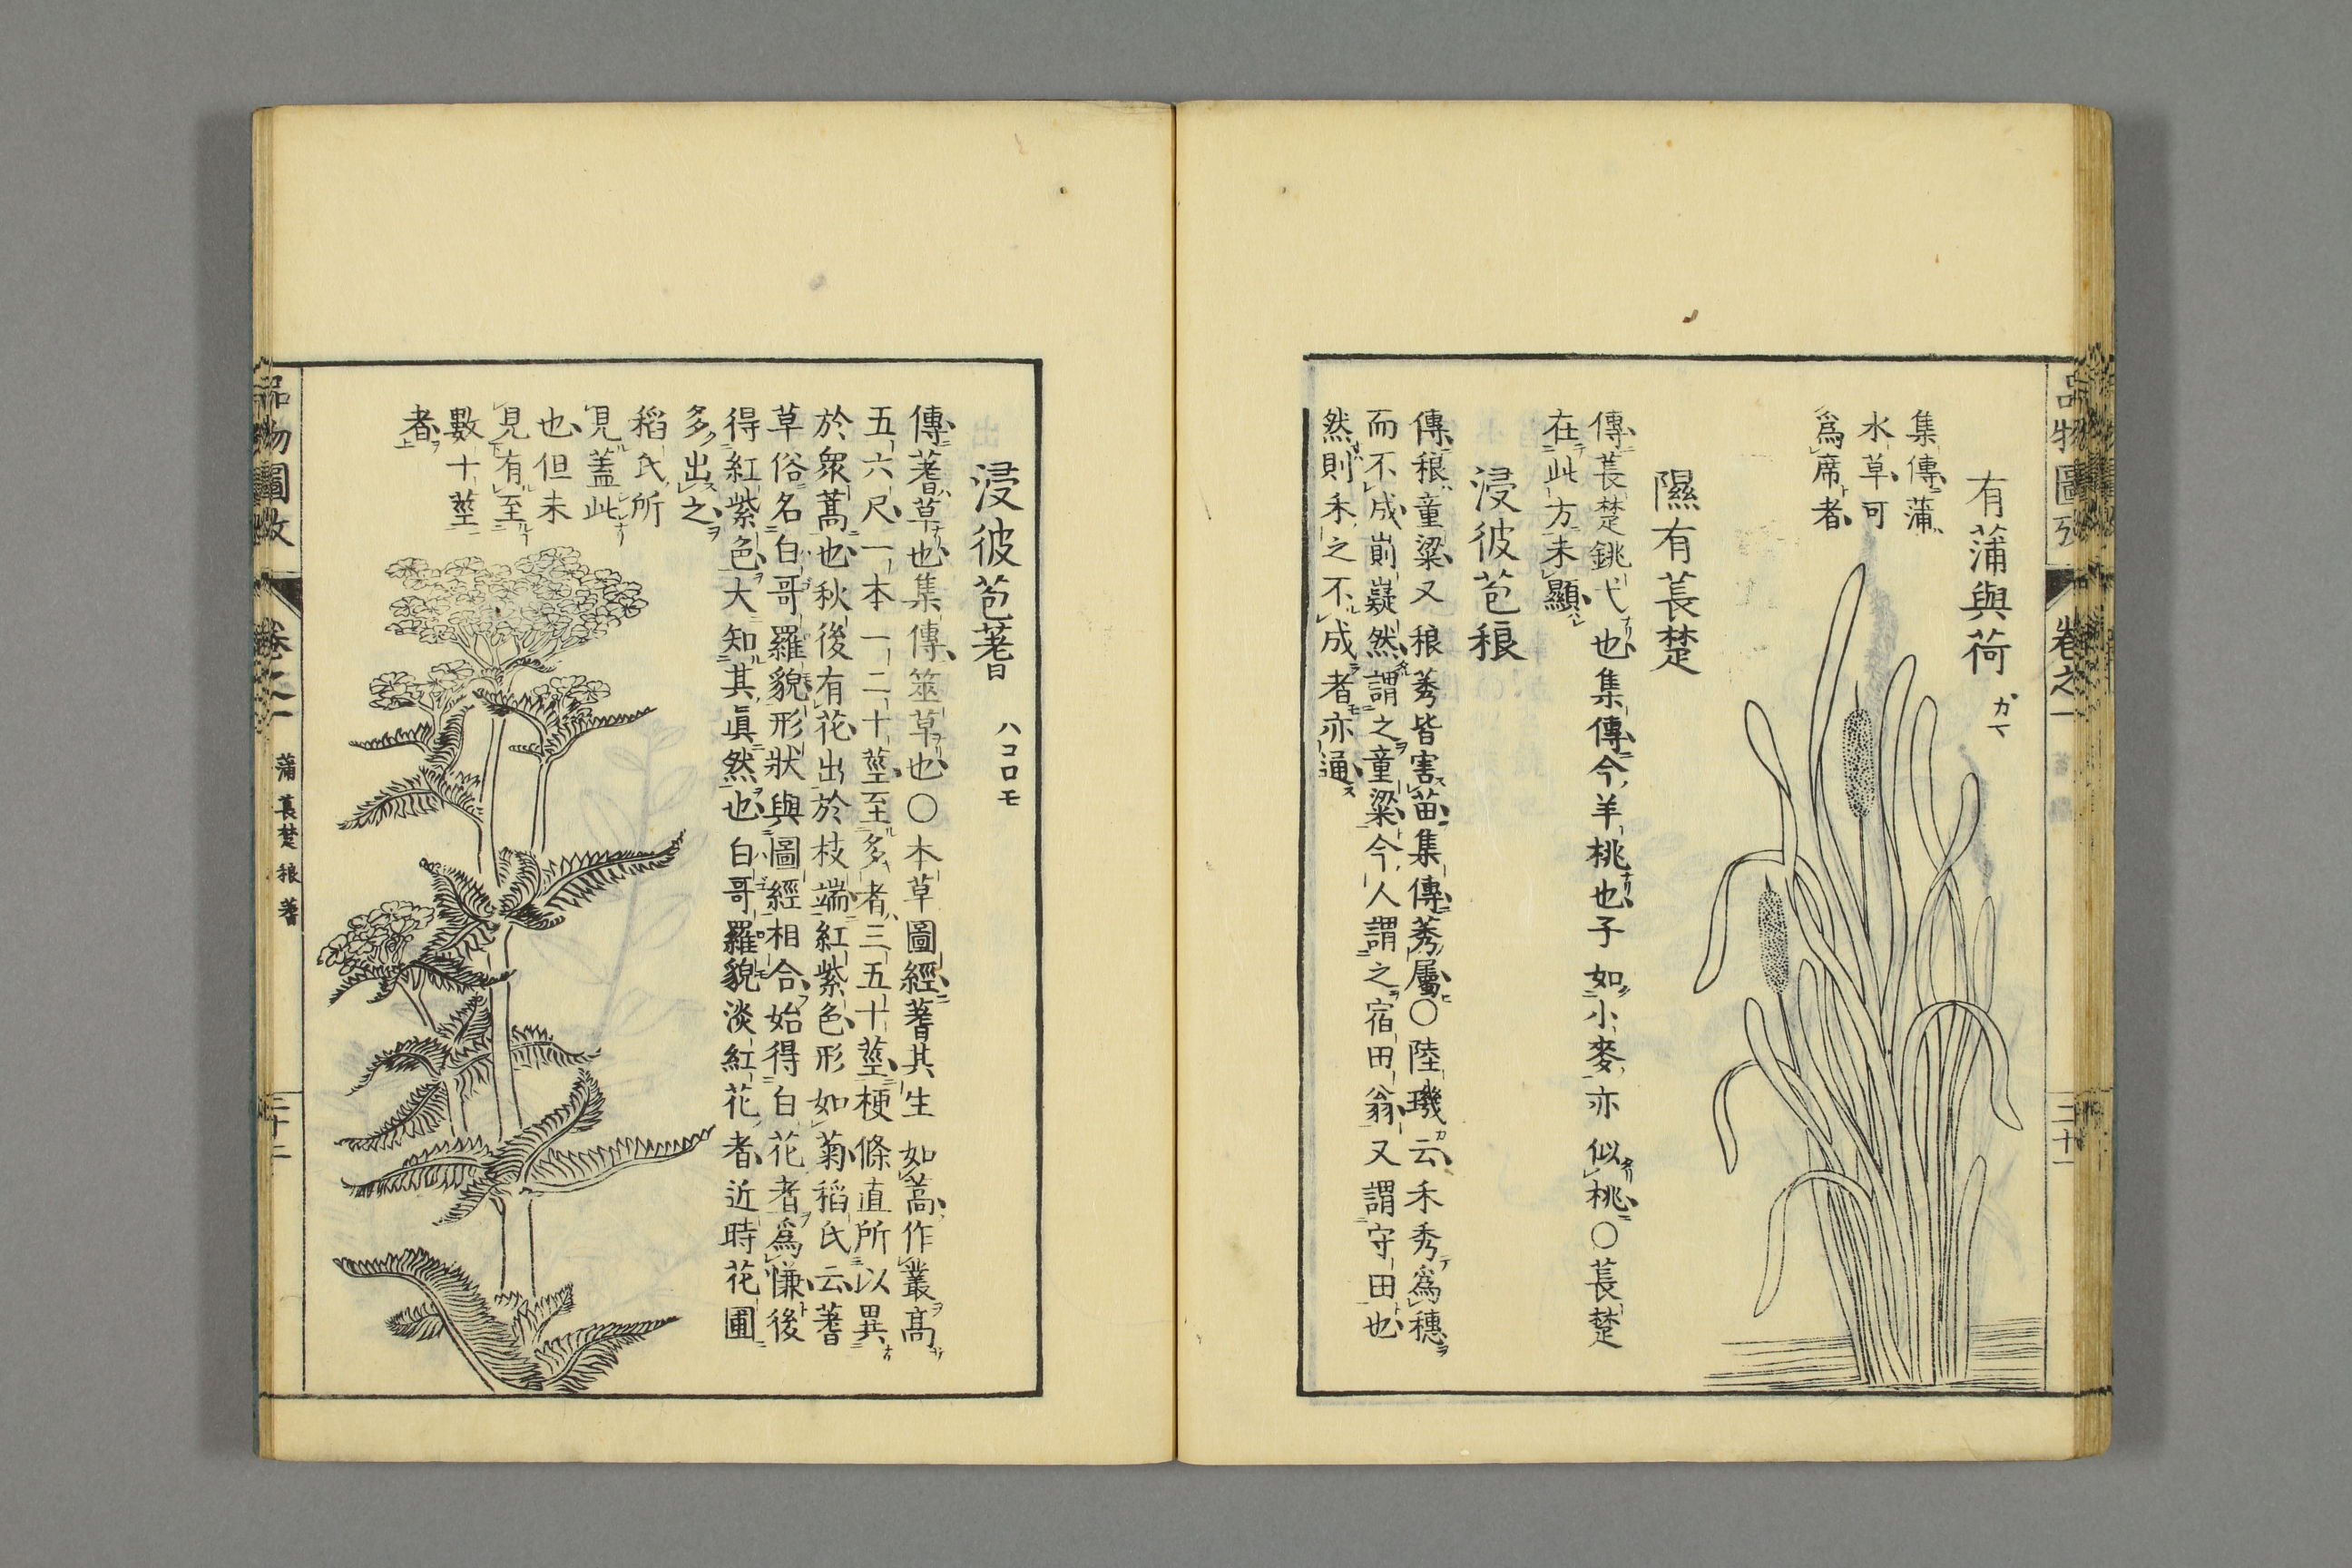 有蒲與荷 カマ
集傳蒲
水草可
爲席者
隰有萇楚
傳萇楚銚弋也集傳今羊桃也子如小麥亦似桃〇萇楚
在此方未顯
浸彼苞稂
傳稂童粱又稂莠皆害苗集傳莠屬〇陸璣云禾秀爲穗
而不成崱嶷然謂之童粱今人謂之宿田翁又謂守田也
然則禾之不成者亦通
浸彼苞蓍 ハコロモ
傳蓍草也集傳筮草也〇本草圖經蓍其生如蒿作叢高
五六尺一本一二十莖至多者三五十莖梗條直所以異
於衆蒿也秋後有花出於枝端紅紫色形如菊稻氏云蓍
草俗名白哥羅貌形狀與圖經相合始得白花者爲慊後
得紅紫色大知其眞然也白哥羅貌淡紅花者近時花圃
多出之
稻氏所
見蓋此
也但未
見有至
數十莖
者
品物圖攷 卷之一 蒲 萇楚 稂 蓍